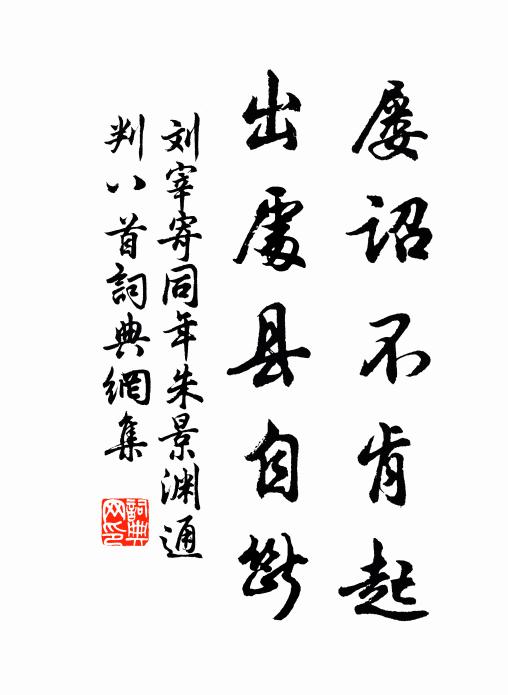 屡詔不肯起
出處县自斷
刘宰寄同年朱景渊通
判八首詞典網集
詞典
网印